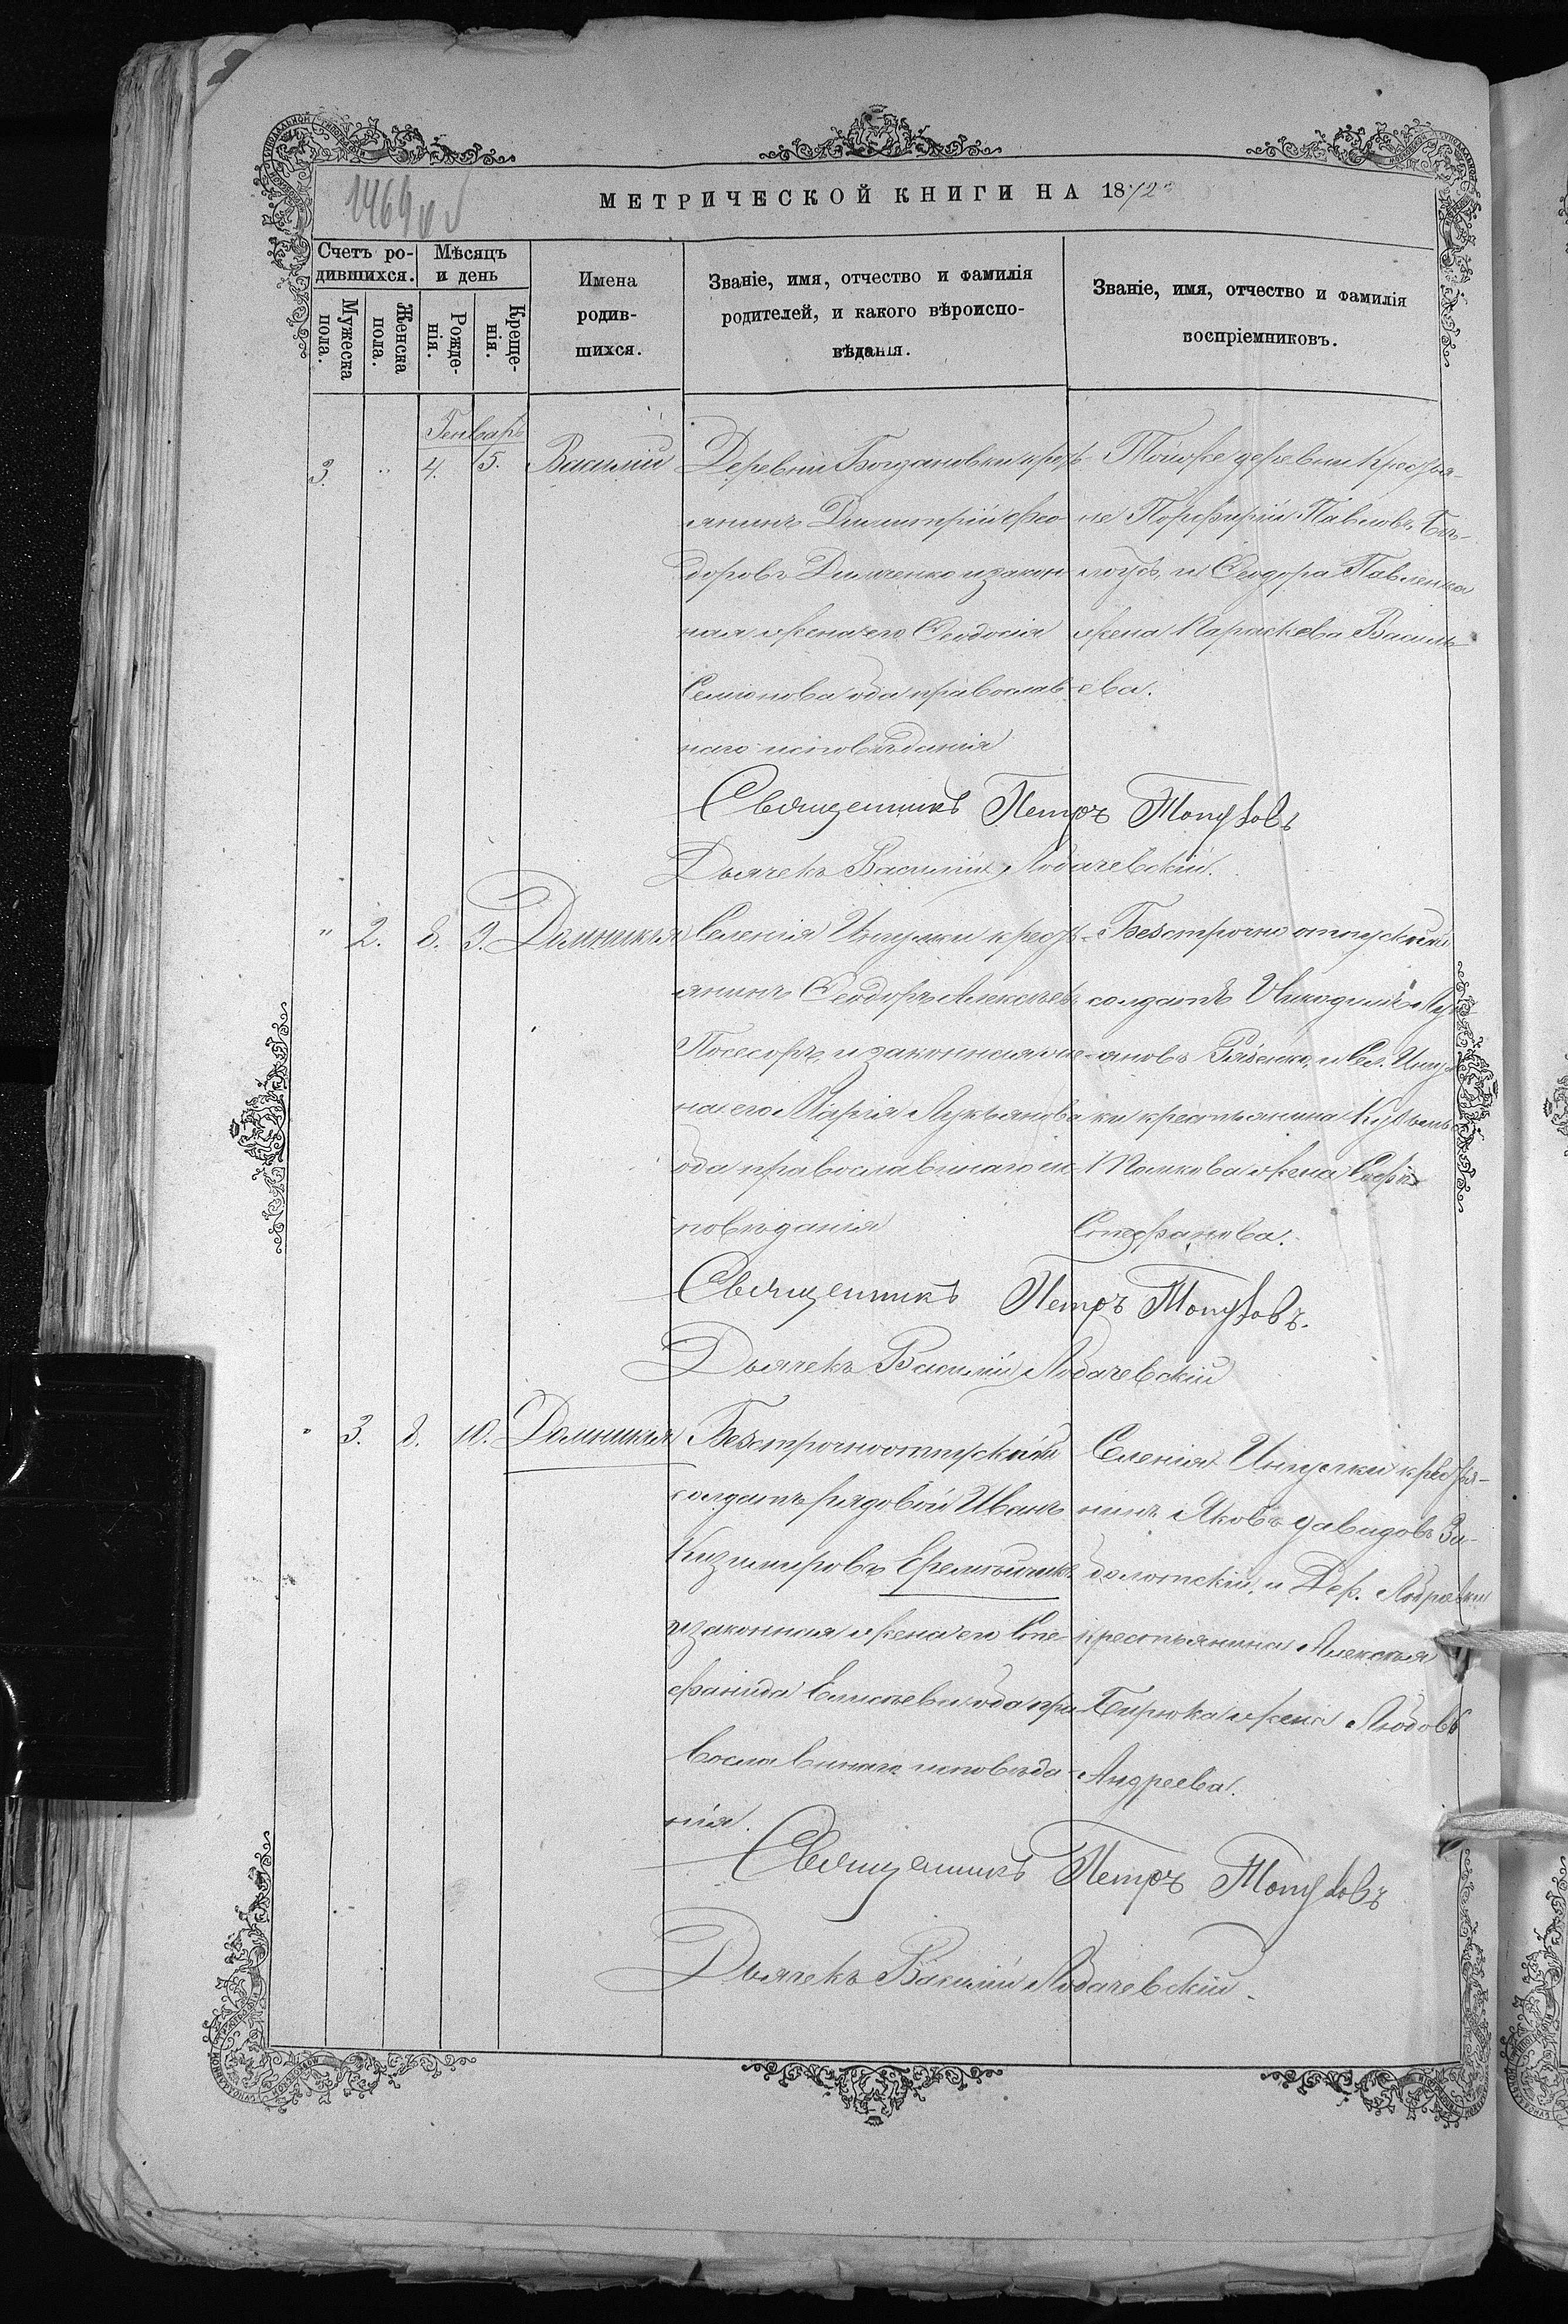 1469
МЕТРИЧЕСКОЙ КНИГИ НА 1872
Счетъ ро-
дившихся.
Мѣсяцъ
и день
Мужеска
пола.
Женска
пола.
Рожде-
нія.
Креще-
нія.
Имена
родив-
шихся.
Званіе, имя, отчество и фамилія
родителей, и какого вѣроиспо-
вѣданія.
Званіе, имя, отчество и фамилія
воспріемниковъ.
Генварь
3. 4. 5. Василій
Деревни Богдановки крестъ-
янинъ Димитрій Ѳео-
доровъ Димченко и закон
ная жена его Ѳеодосія
Семіонова оба православ
наго исповѣданія
Тойже деревни крестья-
не Порфирій Павловъ
и Ѳеодора Павленка
жена Параскева Василь
ева.
Священникъ Петръ
Дьячекъ Василій Лобачевскій.
" 2. 8. 9. Домникія
Селенія Ингулки крестъ-
янинъ Ѳеодоръ Алексѣевъ
Посесоръ, и законная же-
на его Марія Лукьянова
оба православнаго ис-
повѣданія
Безсрочно отпускный
солдатъ Никодимъ Лукь
яновъ и Сел. Ингул
ки крестьянина
жена Софія
Стефанова.
Священникъ Петръ
Дьячекъ Василій Лобачевскій
" 3. 8. 10. Домникія
Безсрочноотпускный
солдатъ рядовой Иванъ
Казимировъ
и законная жена его Сте-
фанида Елисеева оба пра
вославнаго исповѣда-
нія.
Селенія Ингулки крестья-
нинъ Яковъ Давидовъ За-
болотскій, и Дер.
крестьянина Алексѣя
Бирюка жена Любовь
Андреева.
Священникъ Петръ
Дьячекъ Василій Лобачевскій.